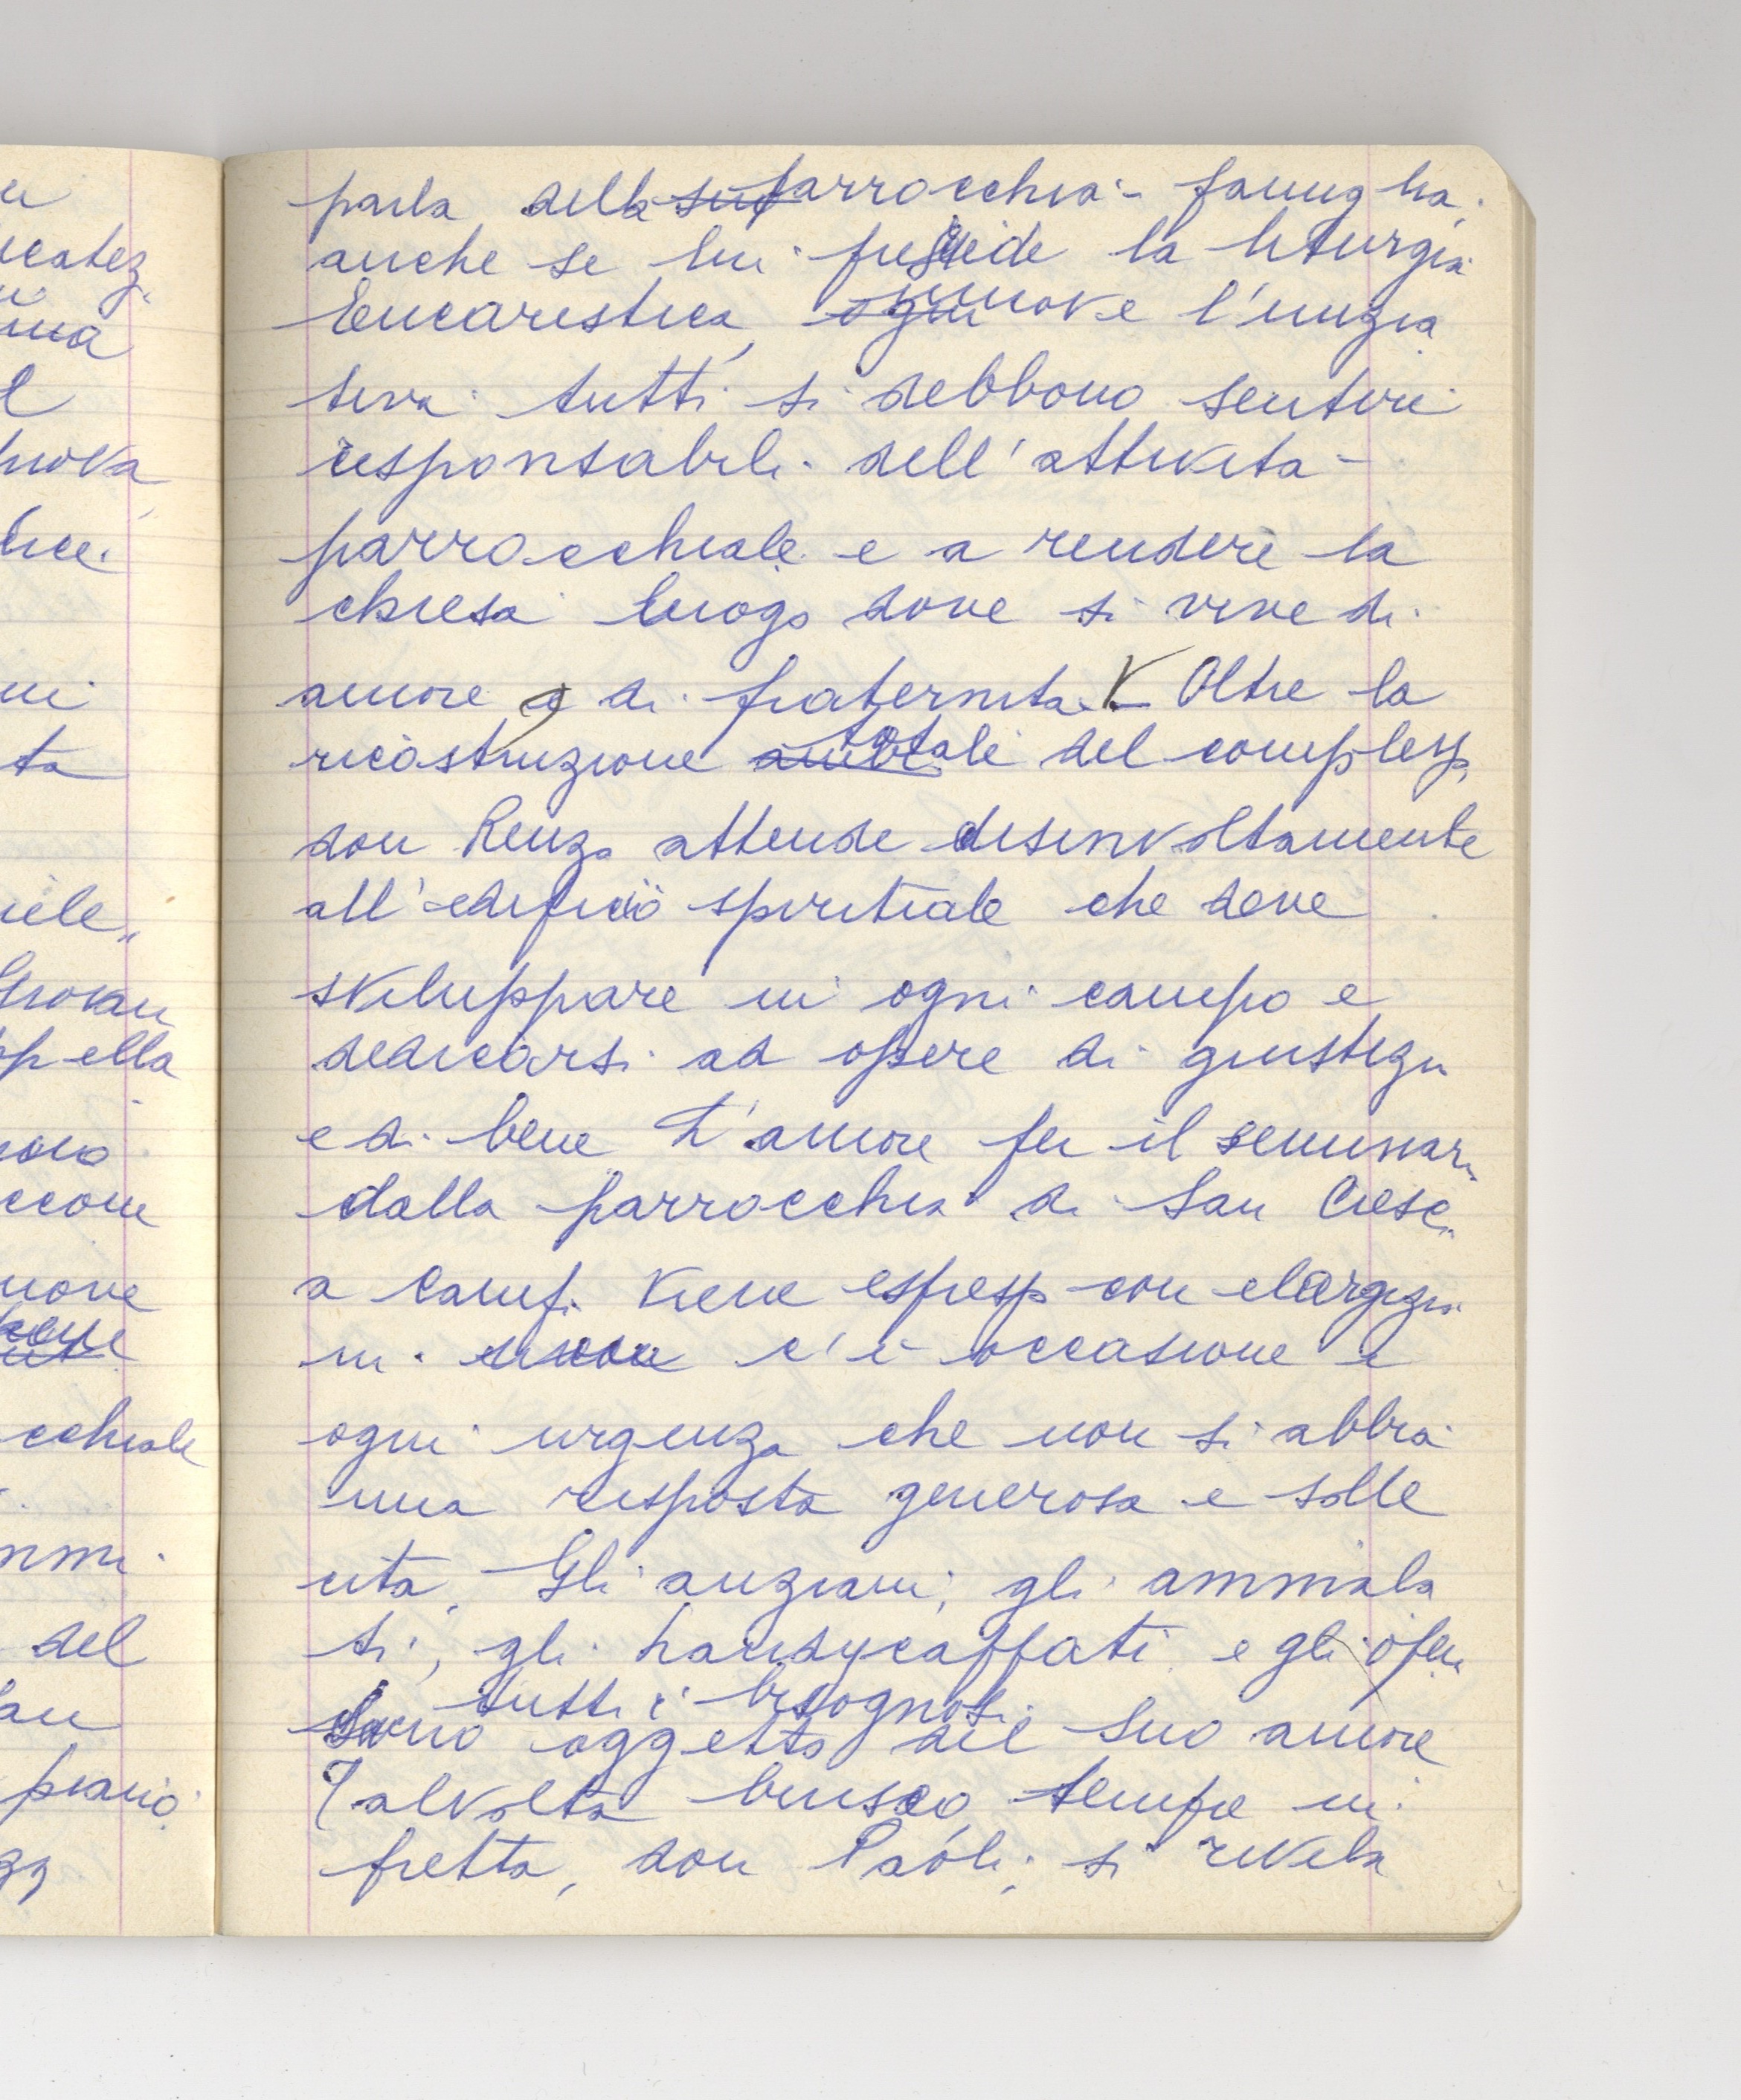 parla della parrocchia - famiglia,
anche se lui presiede la liturgia
Eucaristica, muove l'inizia
tiva tutti si debbono sentire
responsabili dell'attività
parrocchiale e a rendere la
chiesa luogo dove si vive di
amore e di fraternità. Oltre la
ricostruzione totale del complesso,
don Renzo attende disinvoltamente
all'edificio spirituale che deve
sviluppare in ogni campo e
dedicarsi ad opere di giustizia
e di bene L'amore per il seminario
dalla parrocchia di San Cresci
a Campi viene espresso con elargizio
ni. c'è occasione e
ogni urgenza che non si abbia
una risposta generosa e solle
cita. Gli anziani, gli ammala
ti, gli handycappati e gli
tutti i bisognosi
sono oggetto del suo amore
Talvolta brusco, sempre in
fretta, don Paoli, si rivela
ta
del
ppella
cchiale